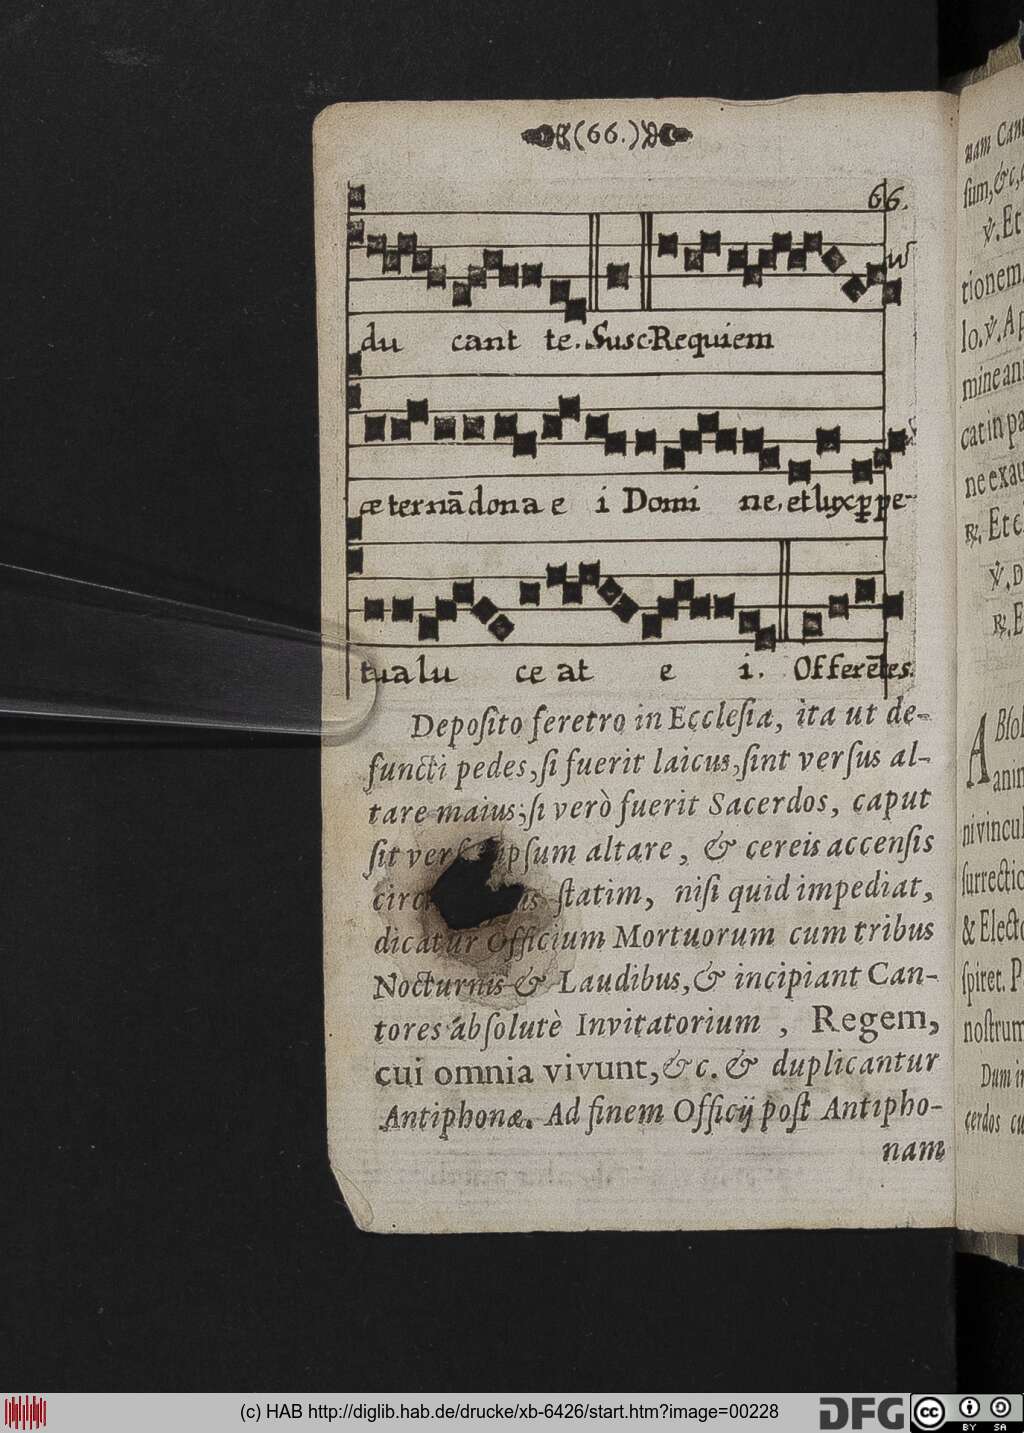 (66.)
66.
du cant te. Susc. Requiem
æ ternā dona e i Domi ne, et lux ꝑpe-
tua lu ce at e i. Offerētes.
Deposito feretro in Ecclesia, ita ut de-
functi pedes, si fuerit laicus, sint versus al-
tare maius; si verò fuerit Sacerdos, caput
sit ipsum altare, & cereis accensis
statim, nisi quid impediat,
dicatur Officium Mortuorum cum tribus
Nocturnis & Laudibus, & incipiant Can-
tores absolutè Invitatorium, Regem,
cui omnia vivunt, &c. & duplicantur
Antiphonæ. Ad finem Officij post Antipho-
nam
nam
sum, &c,
℣. Et
tionem
lo. ℣. A
mine
cat in pa
ne exau
℟. Et c
℣. D
℟. E
A
anim
ni vincu
surrectio
& Electo
spiret. P
nostrum
Dum in
cerdos cu
(c) HAB http://diglib.hab.de/drucke/xb-6426/start.htm?image=00228
DFG
cc BY SA